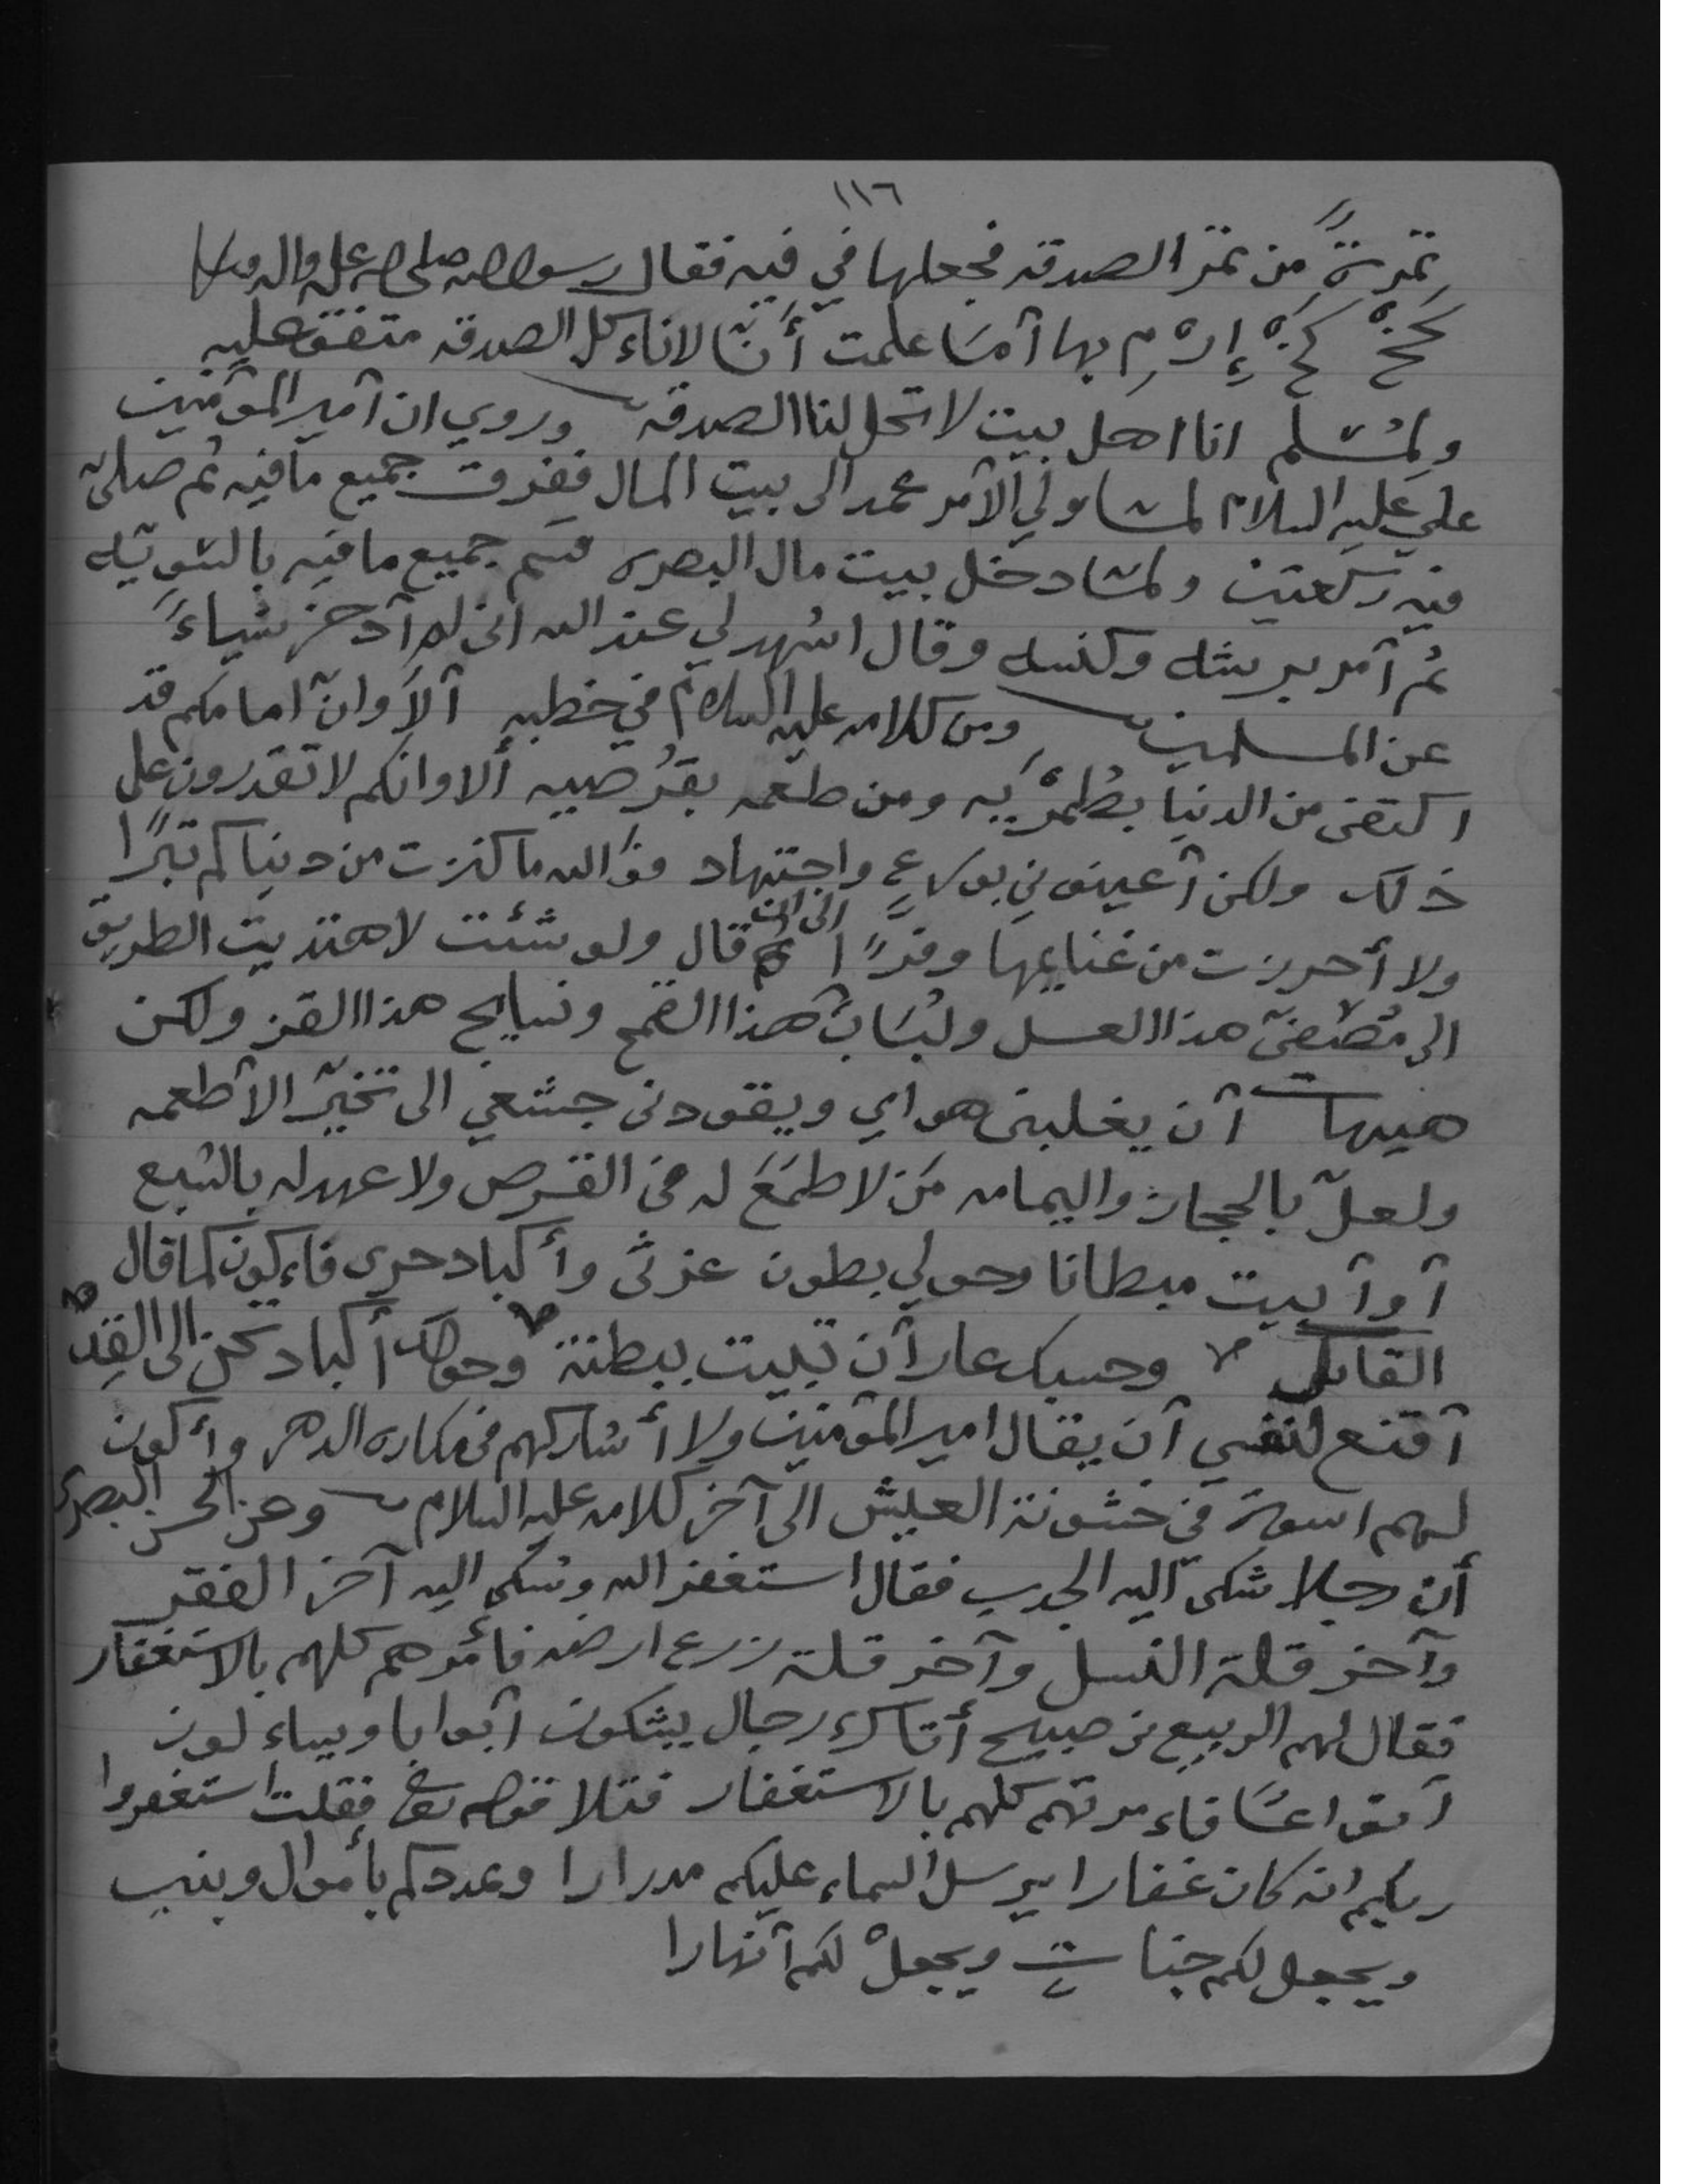 ١١٦
تمرةً من تمر الصدقه فجعلها في فيه فقال رسول الله صلى الله عليه واله وسلم
كَخْ كَخْ إِرْمِ بها آمَا علمت أَنّا لاناءكل الصدقه متفق عليه
ولِمُسْلم انا اهل بيت لا تحل لنا الصدقه وروي ان آمير المؤمنين
علي عليه السلام لمّا ولي الآمر عمد الى بيت المال ففرق جميع ما فيه ثم صلى
فيه ركعتين ولمّا دخل بيت مال البصره قسم جميع ما فيه بالسّوِيّه
ثم آمر برشه وكنسه وقال اشهد لي عند الله انى لم آدخر شياءً
عن المسلمين ومن كلامه عليه السلام في خطبه آلاَ وانّ امامكم قد
اكتفى من الدنيا بطِمْرَيه ومن طعمه بقُرْصيه ألا وانكم لا تقدرون على
ذلك ولكن آعينوني بورعٍ واجتهاد فوَالله ما كنزت من دنياكم تبرًا
ولا أحرزت من غنايمها وفرًا الى ان قال ولو شئت لاهتديت الطريق
الى مُصَفىّ هذا العسل ولُبَابِ هذا القمح ونسايج هذا القز ولكن
هيهات آن يغلبنى هواي ويقودنى جشعي الى تخيّر الآطعمه
ولعلّ بالحجاز واليمامه مَن لا طمَعَ له فى القرص ولا عهد له بالشبع
آوآبيت مبطانا وحولي بطون غرثى وأكباد حرى فاءكون كما قال
القائل وحسبك عارآ آن تبيت ببطنة وحولك أكباد تحن الى القِدّ
آقنع لنفسي آن يقال امير المؤمنين ولا أشاركهم فى مكاره الدهر وأكون
لهم اسوة فى خشونة العيش الى آخر كلامه عليه السلام وعن الحسن البصري
أن رجلا شكى آليه الجدب فقال استغفر الله وشكى اليه آخر الفقر
وآخر قلة النسل وآخر قلة زرع ارضه فأمرهم كلهم بالاستغفار
فقال لهم الربيع بن صبيح أتاك رجال يشكون آبوابا ويساءلون
آنواعًا فاءمرتهم كلهم بالاستغفار فتلا قوله تعالى فقلت استغفروا
ربكم انه كان غفارا يرسل السماء عليكم مدرارا ويمددكم بأموال وبنين
ويجعل لكم جناتٍ ويجعلْ لكم آنهارا